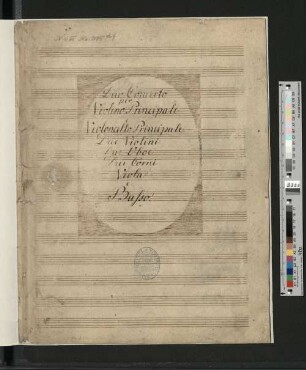 Duo Concerto
per
Violino Principale
Violoncello Principale
Due Violini
Due Oboe
Due Corni
Viola
e
Basso.